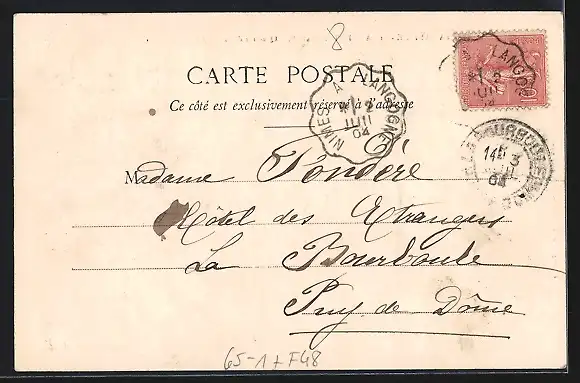 8
CARTE POSTALE
Ce côté est exclusivement réservé à l'adresse
NIMES A LANGOGNE
2
JUIL
04
LANGOGNE
2
JUIL
04
10
LA BOURBOULE
14
3
JUIL
04
Madame Fondère
Hôtel des Etrangers
La Bourboule
Puy de Dôme
65-1+F48